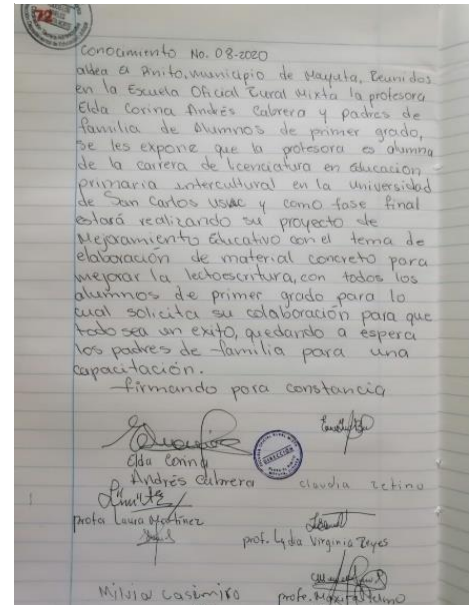 72
Conocimiento No. 08-2020
aldea el Anito, municipio de Moyuta, Reunidos
en la Escuela Oficial Rural Mixta la profesora
Elda Corina Andrés Cabrera y padres de
familia de Alumnos de primer grado,
se les expone que la profesora es alumna
de la carrera de licenciatura en educación
primaria intercultural en la universidad
de San Carlos usac y como fase final
estará realizando su proyecto de
Mejoramiento Educativo con el tema de
elaboración de material concreto para
mejorar la lectoescritura, con todos los
alumnos de primer grado para lo
cual solicita su colaboración para que
todo sea un exito, quedando a espera
los padres de familia para una
capacitación.
firmando para constancia
Elda Corina
Andrés Cabrera
claudia Zetino
DIRECCIÓN
profa Laura Martínez
prof. Lydia Virginia Reyes
Milvia Casimiro
profe.